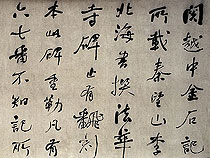 閱越中金石記
所載秦望山李
北海書撰法華
寺碑上有翻刻
本此碑重勒凡有
六七番不知記所